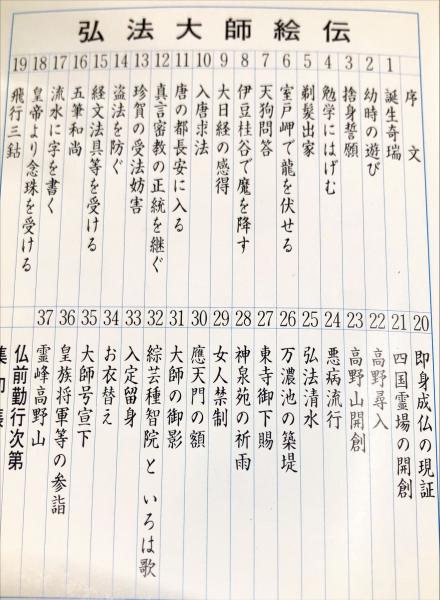 弘法大師絵伝
序文
1 誕生奇瑞
2 幼時の遊び
3 捨身誓願
4 勉学にはげむ
5 剃髪出家
6 室戸岬で龍を伏せる
7 天狗問答
8 伊豆桂谷で魔を降す
9 大日経の感得
10 入唐求法
11 唐の都長安に入る
12 真言密教の正統を継ぐ
13 珍賀の受法妨害
14 盗法を防ぐ
15 経文法具等を受ける
16 五筆和尚
17 流水に字を書く
18 皇帝より念珠を受ける
19 飛行三鈷
20 即身成仏の現証
21 四国霊場の開創
22 高野尋入
23 高野山開創
24 悪病流行
25 弘法清水
26 万濃池の築堤
27 東寺御下賜
28 神泉苑の祈雨
29 女人禁制
30 應天門の額
31 大師の御影
32 綜芸種智院といろは歌
33 入定留身
34 お衣替え
35 大師号宣下
36 皇族将軍等の参詣
37 霊峰高野山
仏前勤行次第